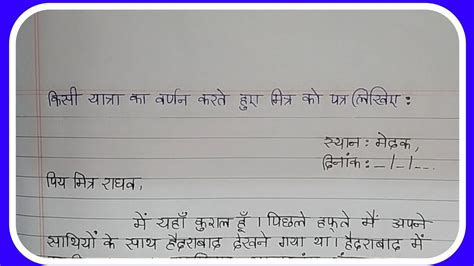 किसी यात्रा का वर्णन करते हुए मित्र को पत्र लिखिए :
स्थान : मेदक,
दिनांक : _/_/_ _
प्रिय मित्र राघव,
में यहाँ कुशल हूँ । पिछले हफ्ते मैं अपने
साथियों के साथ हैदराबाद देखने गया था। हैदराबाद में